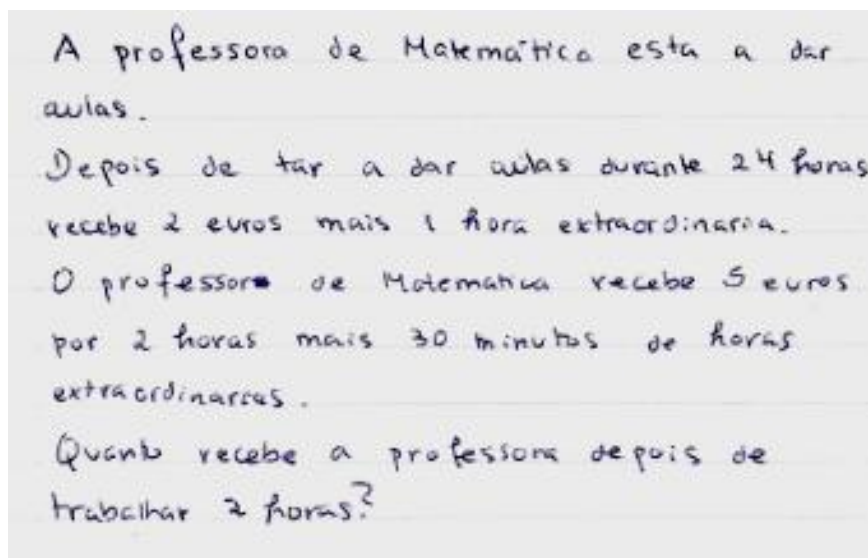 A professora de Matemática esta a dar
aulas.
Depois de tar a dar aulas durante 24 horas
recebe 2 euros mais 1 hora extraordinaria.
O professor de Matematica recebe 5 euros
por 2 horas mais 30 minutos de horas
extraordinarias.
Quanto recebe a professora depois de
trabalhar 2 horas?